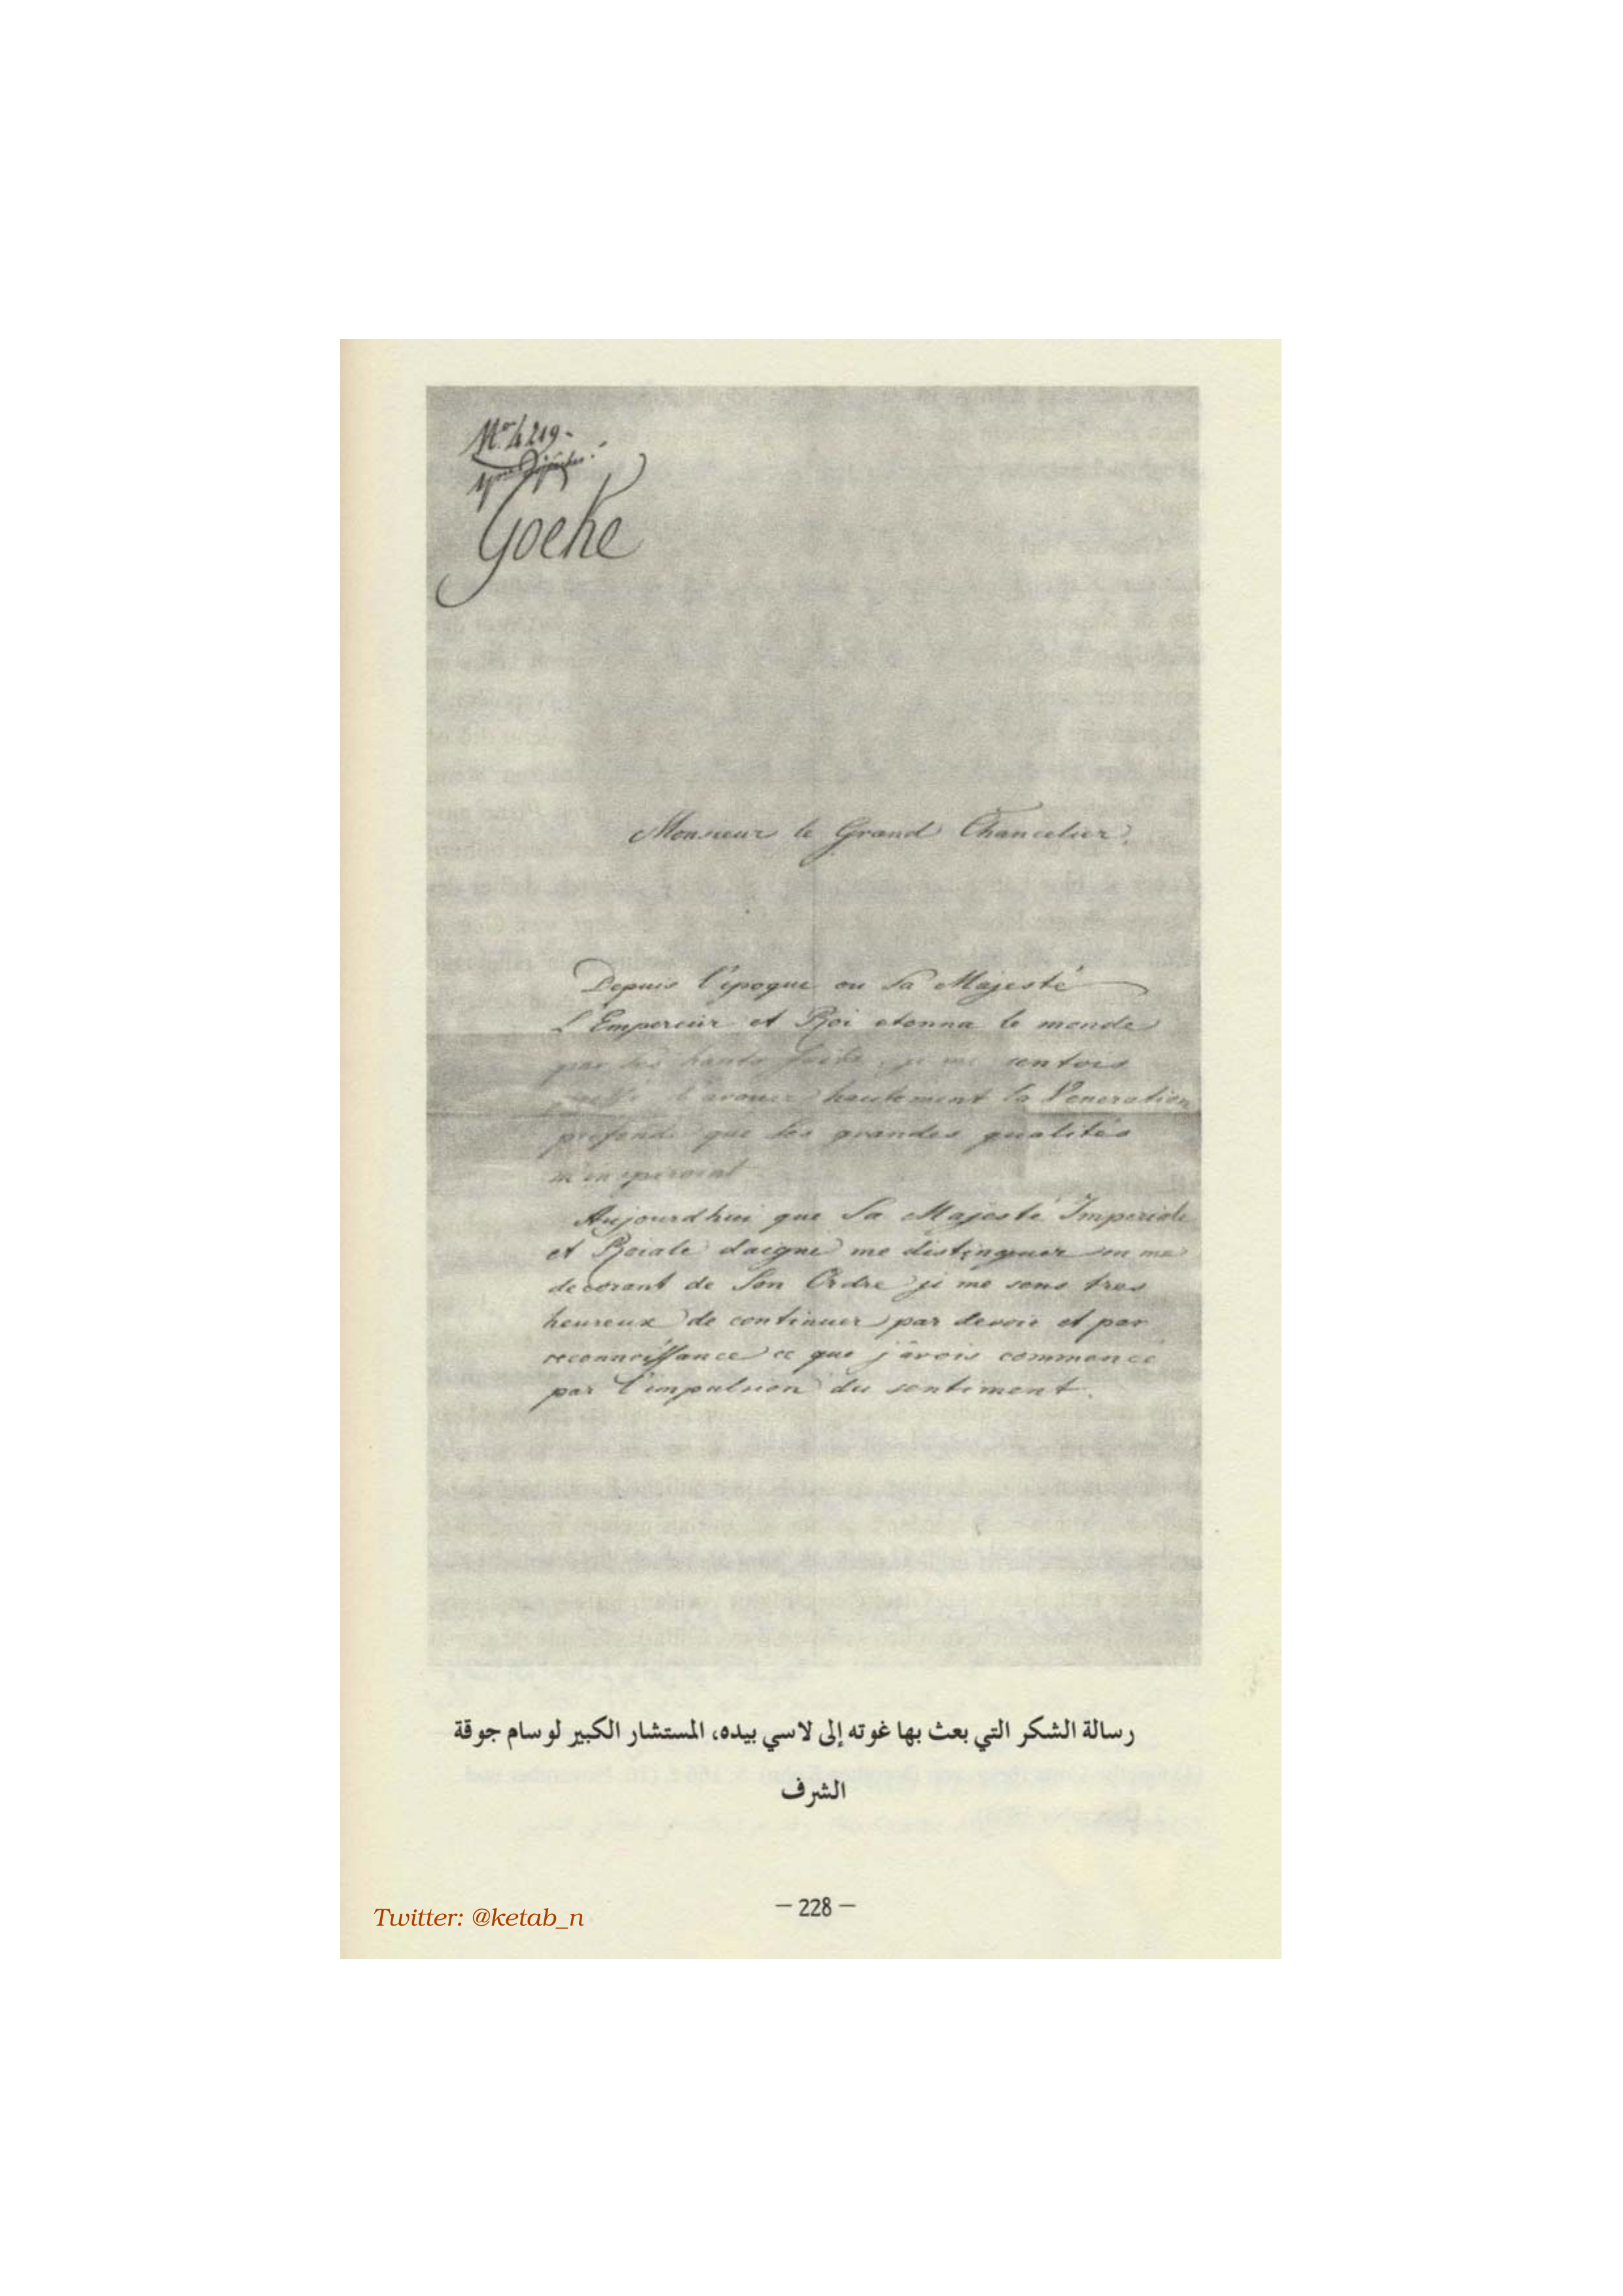 No. 4219-
Goethe
Monsieur le Grand Chancelier.
Depuis l'epoque ou Sa Majesté
L'Empereur et Roi etonna le monde
par Ses hauts faits, je me sentois
l'avouer hautement la Veneration
profonde que Ses grandes qualités
m'inspiroient
Aujourdhui que Sa Majesté Imperiale
et Roiale daigne me distinguer en me
decorant de Son Ordre je me sens tres
heureux de continuer par devoir et par
reconnoissance ce que j'avois commencé
par l'impulsion du sentiment.
رسالة الشكر التي بعث بها غوته إلى لاسي بيده، المستشار الكبير لوسام جوقة
الشرف
– 228 –
Twitter: @ketab_n